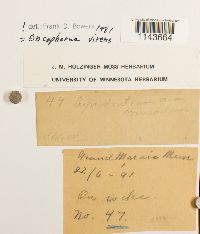 ! det. Frank D. Bowers 1981
= Oncophorus virens
1143664
J. M. HOLZINGER MOSS HERBARIUM
UNIVERSITY OF MINNESOTA HERBARIUM
47
Grand Marais Minn
22/6-91
On rocks.
No. 47.